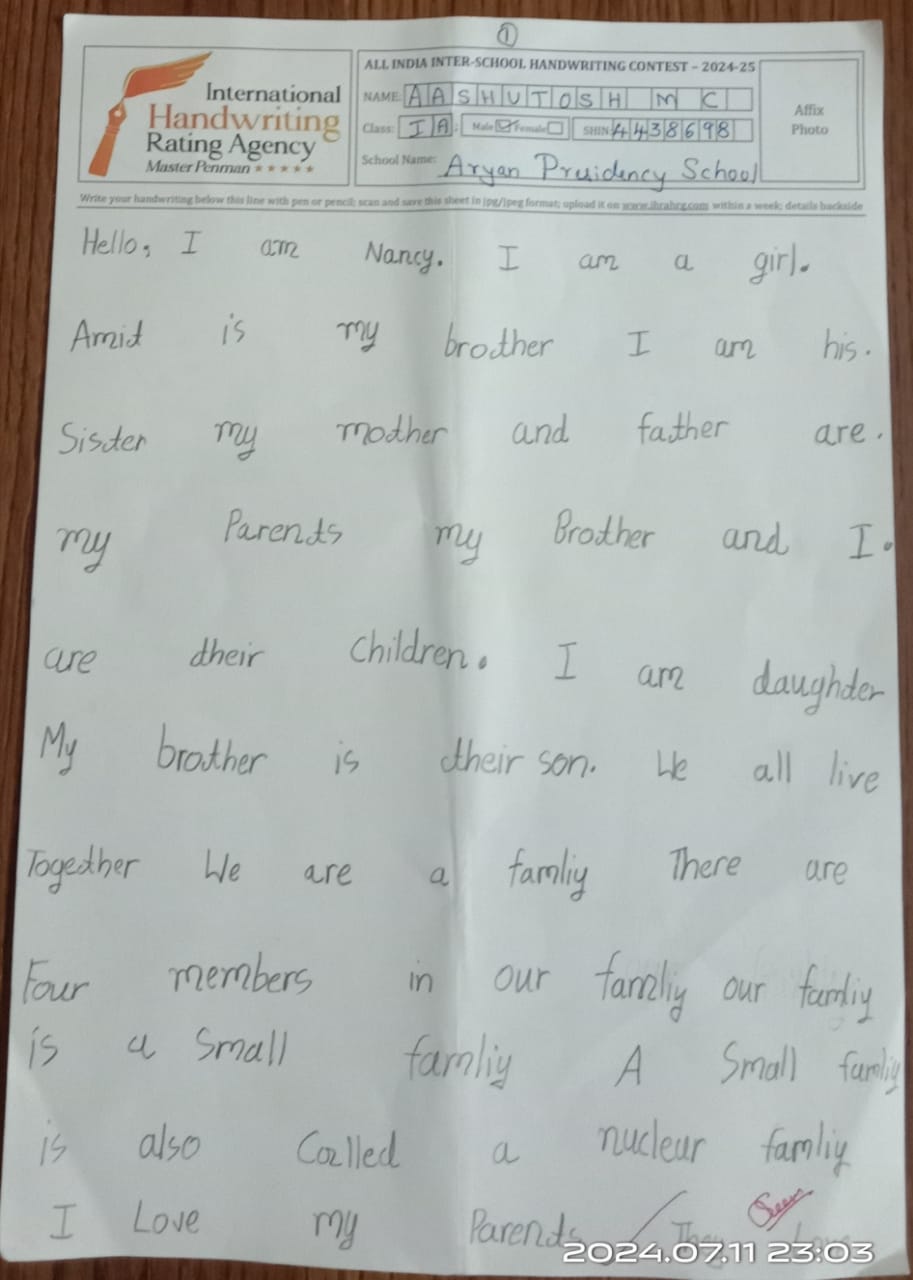 1
International
Handwriting
Rating Agency
Master Penman
ALL INDIA INTER-SCHOOL HANDWRITING CONTEST - 2024-25
NAME: AASHUTOSH M C
Class: I A Male Female SHIN 4438698
School Name: Aryan Presidency School
Affix
Photo
Write your handwriting below this line with pen or pencil; scan and save this sheet in jpg/jpeg format; upload it on www.ihrahrg.com within a week; details backside
Hello, I am Nancy. I am a girl.
Amit is my brother I am his.
Sister my mother and father are.
my Parents my Brother and I.
are their children. I am daughter
My brother is their son. We all live
Together We are a famliy There are
Four members in our famliy our famliy
is a Small famliy A Small famliy
is also Called a nuclear famliy
I Love my Parents They Love
Seen
2024.07.11 23:03